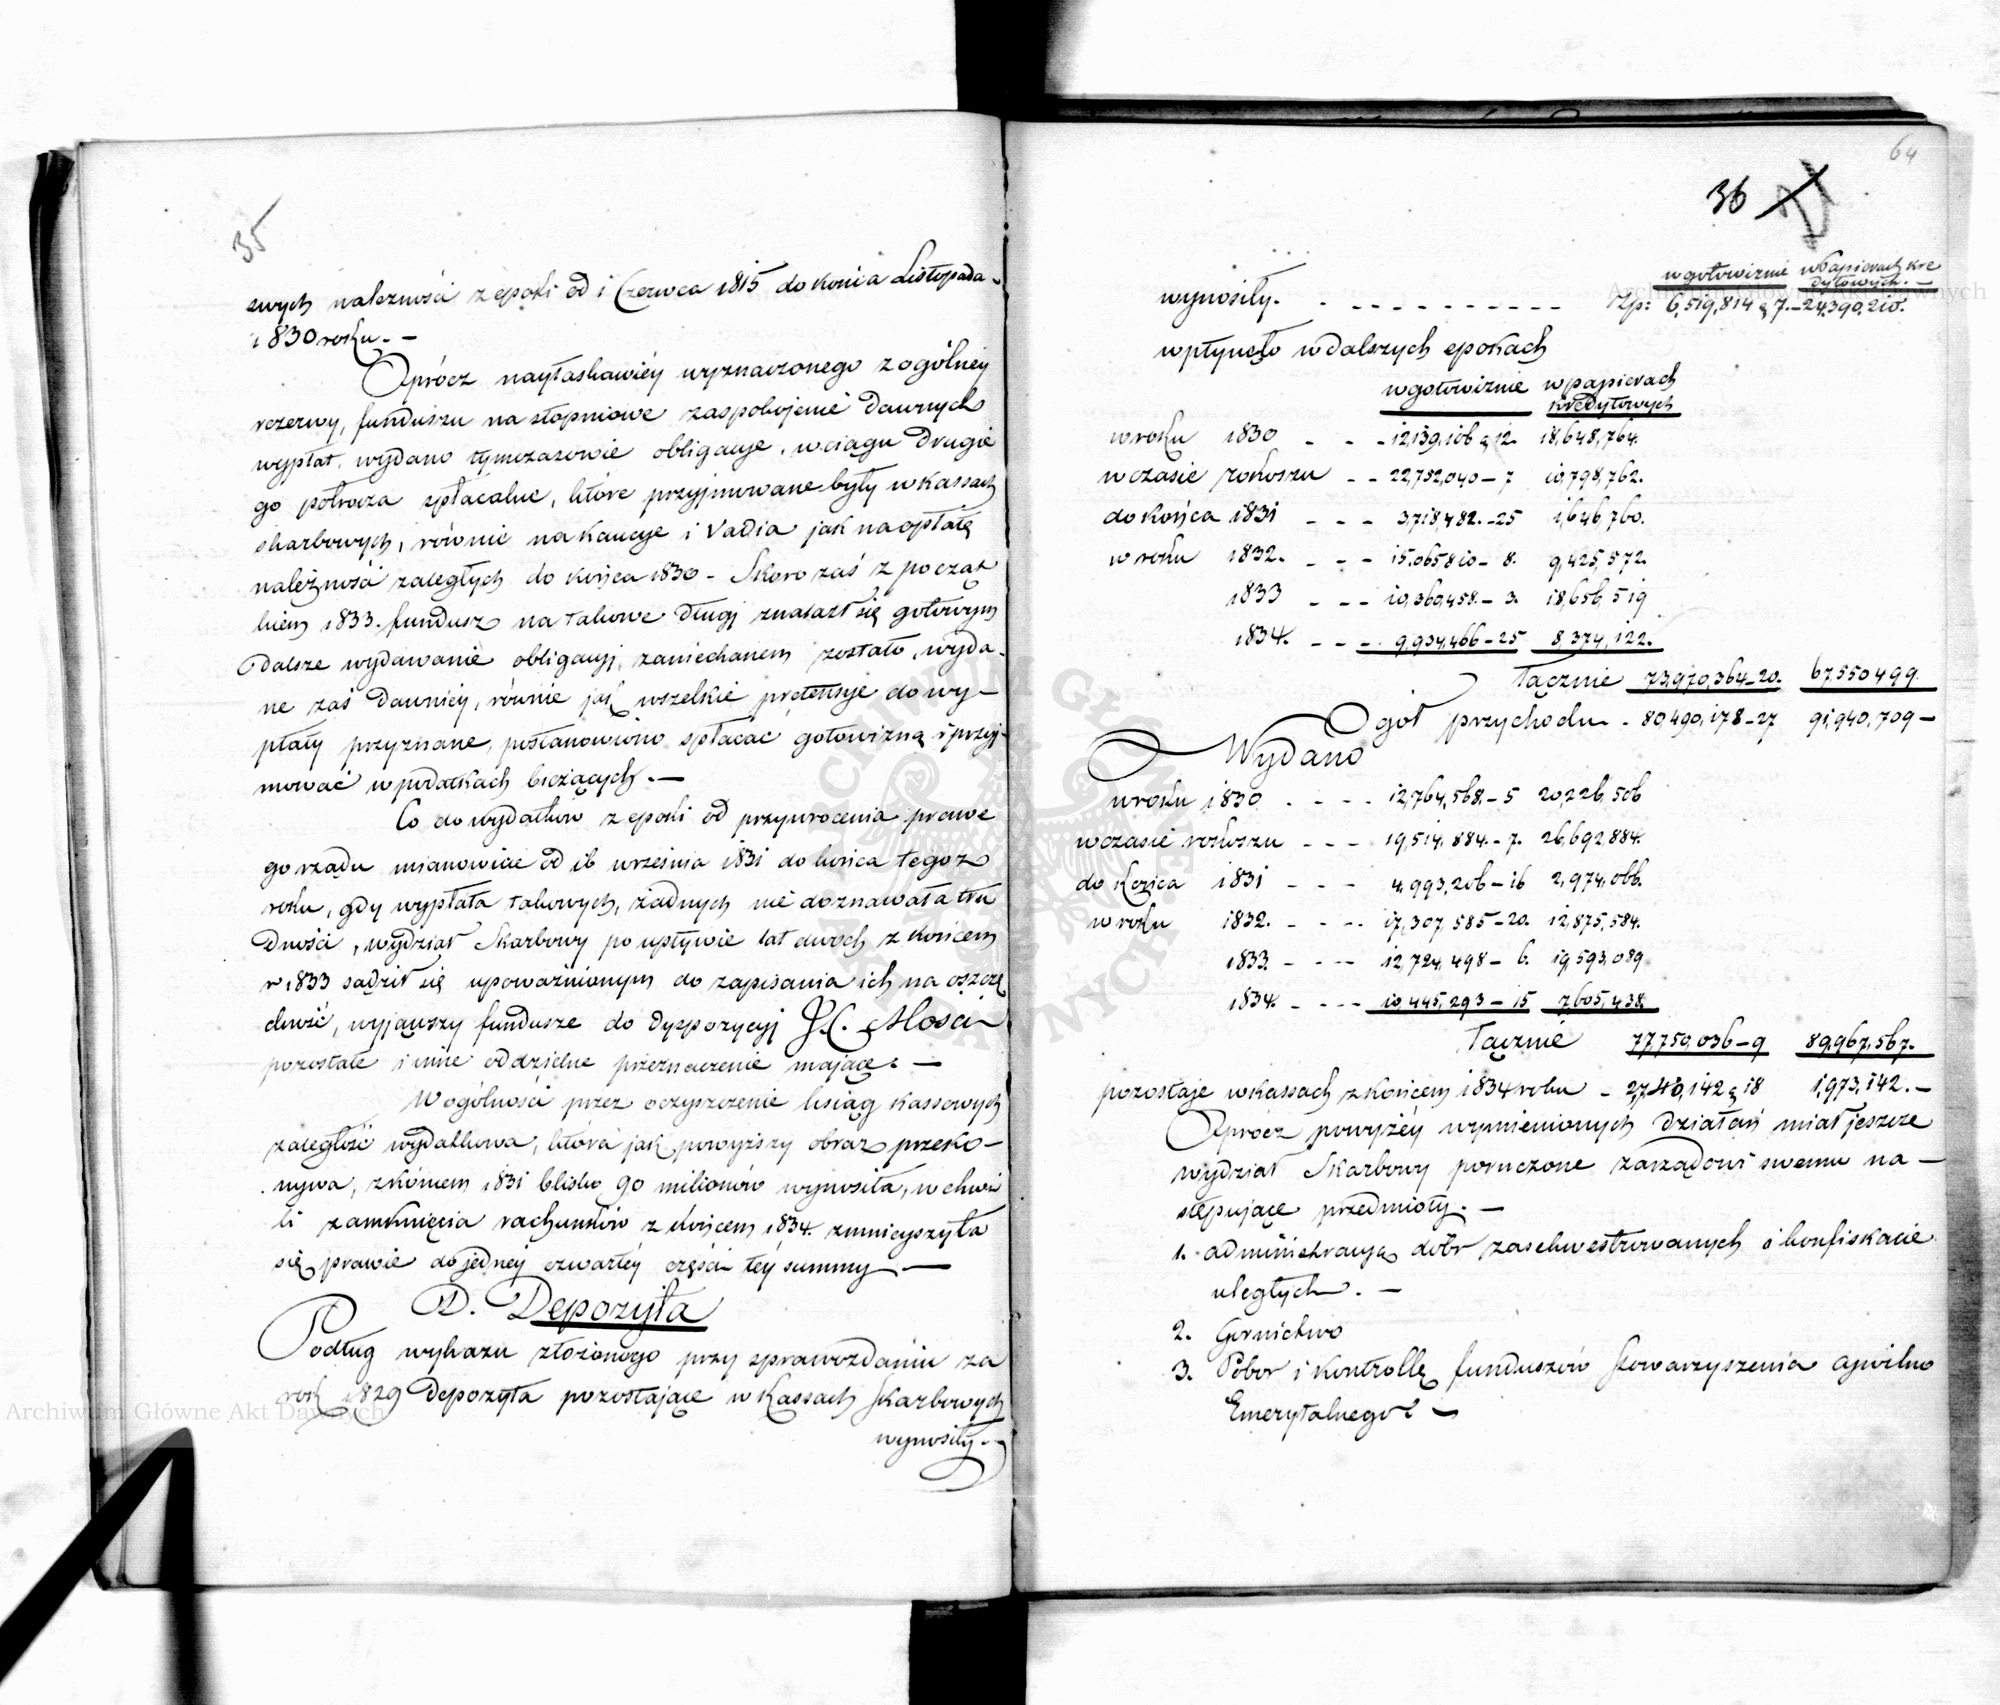 35
swych należności z epoki od 1 Czerwca 1815 do końca Listopada
1830 roku. —
Oprócz nayłaskawiéy wyznaczonego z ogólnéy
rezerwy, funduszu na stopniowe zaspokojenie dawnych
wypłat, wydano tymczasowie obligacye, w ciągu drugie
go półrocza spłacalne, które przyjmowane były w kassach
skarbowych, równie na kaucye i vadia jak na opłatę
należności zaległych do końca 1830 – Skoro zaś z począt
kiem 1833. fundusz na takowe długi znalazł się gotowym
dalsze wydawanie obligacyj, zaniechanem zostało, wyda-
ne zaś dawniey, równie jak wszelkie pretensye do wy-
płaty przyznane, postanowiono spłacać gotowizną i przyj-
mować w podatkach bieżących. —
Co do wydatków z epoki od przywrócenia prawe
go rządu mianowicie od 16 września 1831 do końca tegoż
roku, gdy wypłata takowych, żadnych nie doznawała tru
dności, wydział Skarbowy po upływie lat dwóch z końcem
r 1833 sądził się upoważnionym do zapisania ich na oszczę
dność, wyjąwszy fundusze do dyspozycyj J. C. Mości
pozostałe i inne oddzielne przeznaczenie mające. —
W ogólności przez oczyszczenie ksiąg kassowych
zaległość wydatkowa, która jak powyższy obraz przeko-
nywa, z końcem 1831 blisko 90 milionów wynosiła, w chwi
li zamknięcia rachunków z końcem 1834. zmnieyszyła
się prawie do jednéj czwartéy części téy summy —
D. Depozyta
Podług wykazu złożonego przy sprawozdaniu za
rok 1829 Depozyta pozostające w Kassach Skarbowych
wynosiły. —
64
36
w gotowiznie w Papierach kre
dytowych. —
wynosiły. . – – – – – – – – – złp: 6,519,814 g 7. – 24,390,210.
wpłynęło w dalszych epokach
w gotowiznie w papierach
kredytowych
w roku 1830 – – – 12,139,106 g 12. 18,648,764.
w czasie rokoszu – – 22,752,040 – 7 10,798,762.
do końca 1831 – – – 3,718,482. – 25 1,646,760.
w roku 1832. – – – 15,065810 – 8. 9,425,572.
1833 – – – 10,360,458. – 3. 18,656,519
1834. – – – 9,934,466 – 25 8,374,122.
łącznie 73,970,364 – 20. 67,550499
Ogół przychodu – 80,490,178 – 27 91,940,709 –
Wydano
w roku 1830 . – – – 12,764,568. – 5 20,226,506
w czasie rokoszu – – – 19,514,884. – 7. 26,692,884.
do Końca 1831 – – – 4,993,206 – 16 2,974,066.
w roku 1832. – – – 17,307,585 – 20. 12,875,584.
1833. – – – 12,724,498 – 6. 19,593,089
1834. – – – 10,445,293 – 15 7,605,438.
łącznie 77,750,036 – 9 89,967,567.
pozostaje w kassach z końcem 1834 roku – 2,740,142 g 18 1,973,142. –
Oprócz powyżéy wymienionych działań miał jeszcze
wydział Skarbowy poruczone zarządowi swemu na –
stępujące przedmioty. —
1. administracyą dóbr zasekwestrowanych i konfiskacie
uległych. —
2. Gornictwo
3. Pobor i kontrollę funduszów Stowarzyszenia cywilno
Emerytalnego. —
Archiwum Główne Akt Dawnych
Archiwum Główne Akt Dawnych